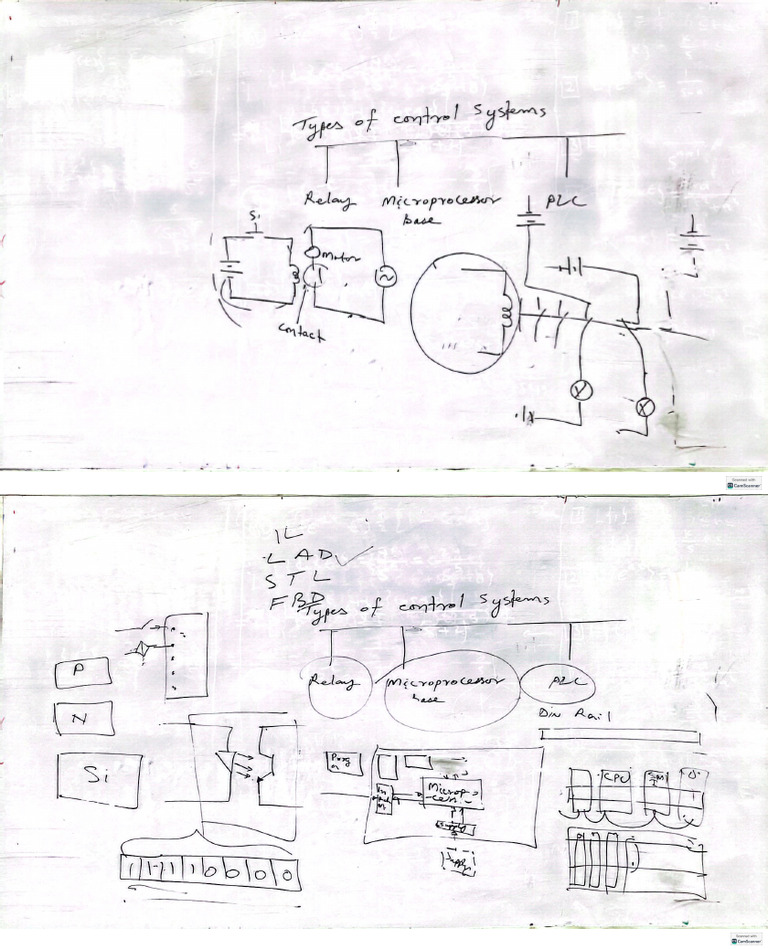 Types of control Systems
Relay
Microprocessor
base
PLC
S1
Motor
contact
Scanned with
CamScanner
IL
LAD
STL
FBD
Types of control Systems
Relay
Microprocessor
base
PLC
P
N
Si
Din Rail
CPU
1 1 1 1 0 0 0 0
Scanned with
CamScanner